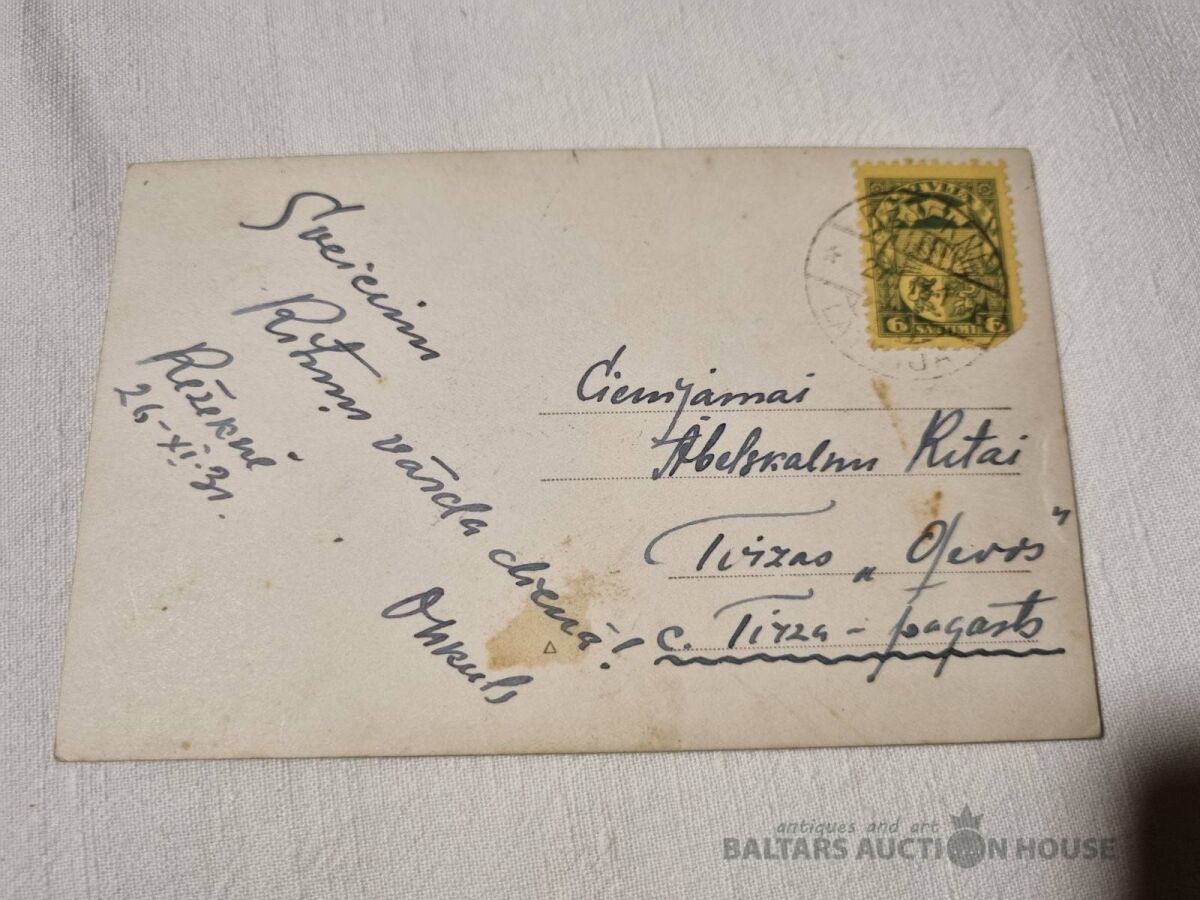 Sveicinu
Ritiņu vārda dienā!
Rēzeknē
26-XI.31.
LATVIJA
6 SANTIMI 6
LATVIJA
Cienījamai
Ābelskalnu Ritai
Tirzas „
c. Tirza-pagasts
antiques and art
BALTARS AUCTION HOUSE